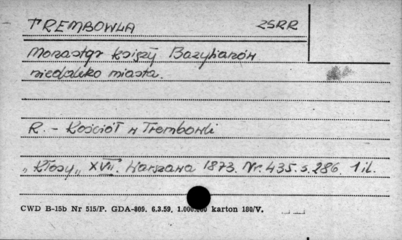 TREMBOWLA ZSRR
Monastyr księży Bazylianów
niedaleko miasta.
R. - Kościół w Trembowli
"Kłosy" XVII. Warszawa 1873. Nr. 435. s. 286. 1 il.
CWD B-15b Nr 515/P. GDA-869. 6.3.59, karton 180/V.